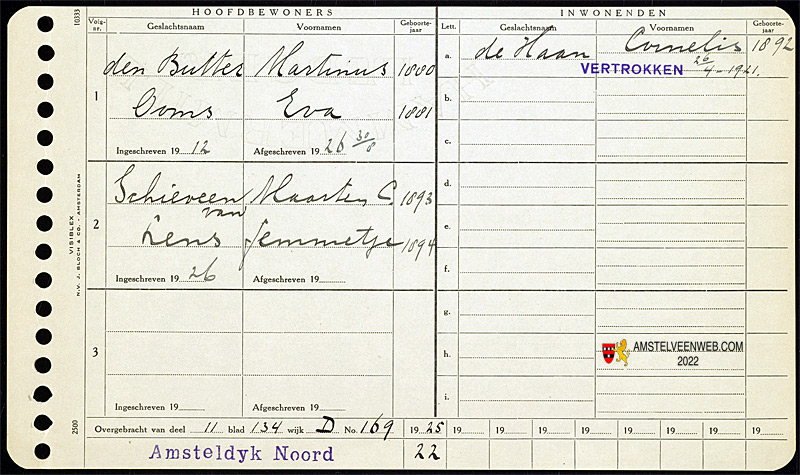 10333
HOOFDBEWONERS
INWONENDEN
Volg-nr.
Geslachtsnaam
Voornamen
Geboorte-jaar
Lett.
Geslachtsnaam
Voornamen
Geboorte-jaar
1
den Butter Martinus 1880
Ooms Eva 1881
Ingeschreven 1912
Afgeschreven 1926 30/8
2
Schieveen Maarten C. 1893
van
Lens Jemmetje 1894
Ingeschreven 1926
Afgeschreven 19
3
Ingeschreven 19
Afgeschreven 19
a. de Haan Cornelis 1892
VERTROKKEN 26/4-1921.
b.
c.
d.
e.
f.
g.
h.
i.
AMSTELVEENWEB.COM
2022
VISIBLEX
N.V. J. BLOCH & CO. - AMSTERDAM
2500
Overgebracht van deel 11 blad 134 wijk D No. 169 1925 19 19 19 19 19 19 19 19
Amsteldyk Noord 22